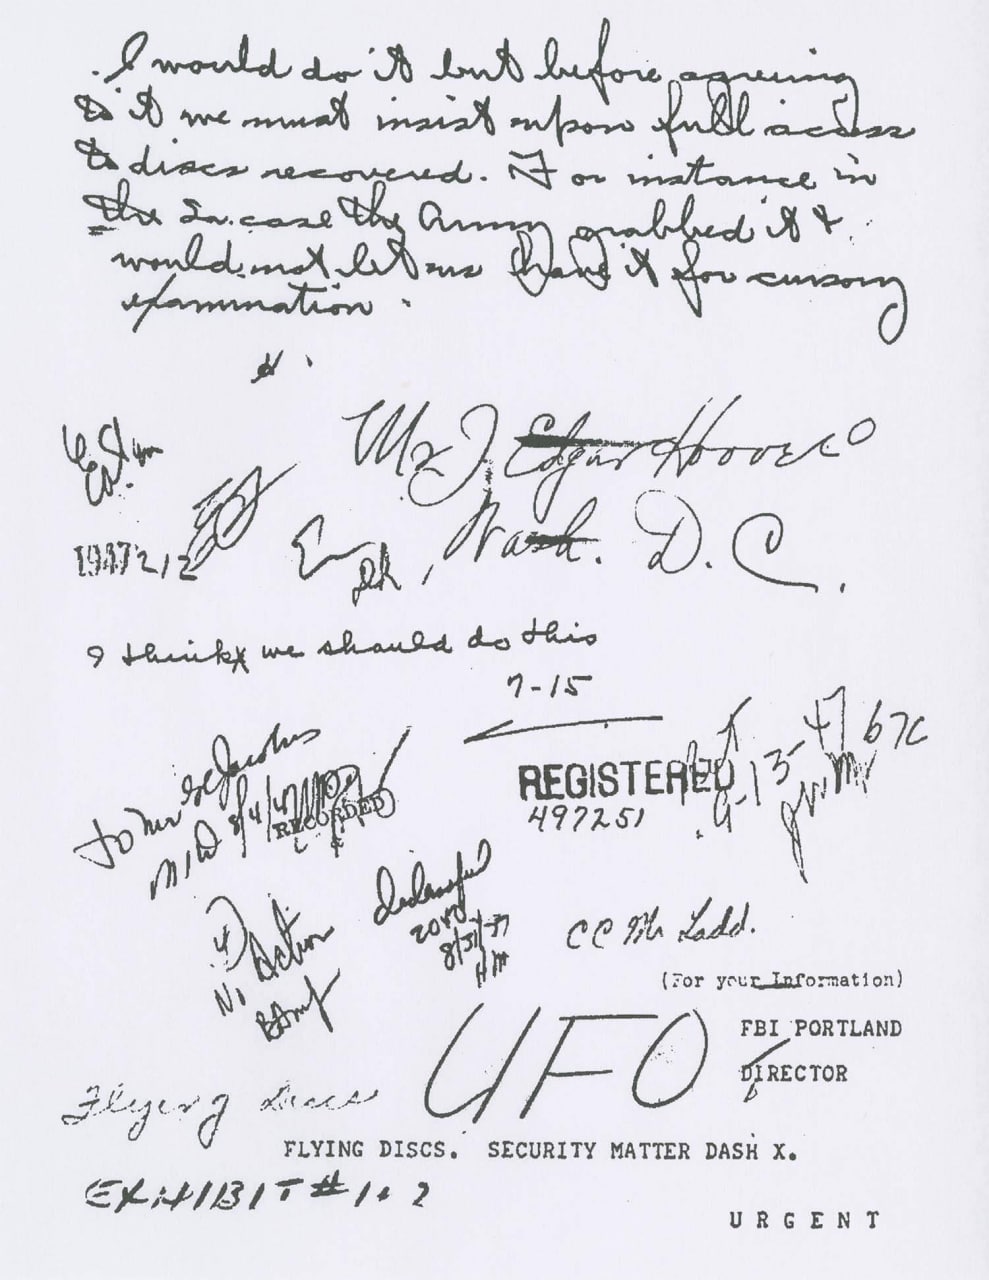 I would do it but before agreeing
to it we must insist upon full access
to discs recovered. For instance in
the case the Army grabbed it &
would not let us have it for cursory
examination.
H
Mr J. Edgar Hoover
Wash. D. C.
1947 212
I think we should do this
7-15
REGISTERED
497251
9-13-47 67C
To Mr Jacobs
MID 8/4/47
RECORDED
No Action
8/31/
HM
CC Mr Ladd.
(For your Information)
FBI PORTLAND
DIRECTOR
UFO
Flying Discs
FLYING DISCS. SECURITY MATTER DASH X.
EXHIBIT # 1 & 2
URGENT